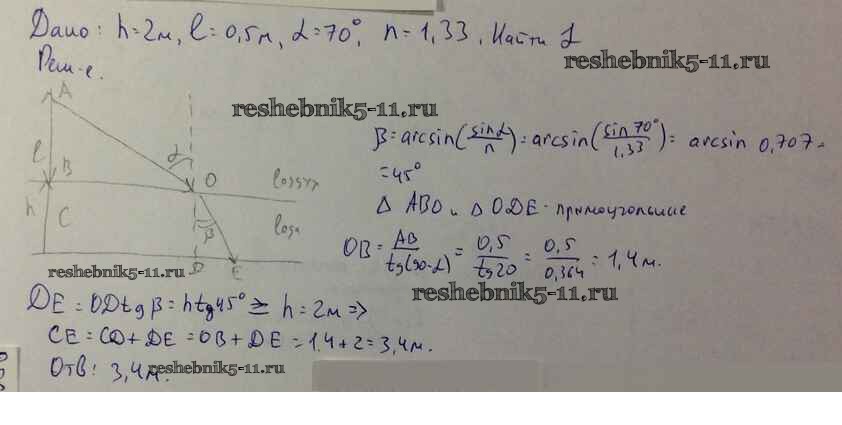 Дано: h=2м, l=0,5м, α=70°, n=1,33. Найти L
reshebnik5-11.ru
Реш-е.
reshebnik5-11.ru
A
α
l
B
O
воздух
h
C
β
вода
D
E
reshebnik5-11.ru
β=arcsin(sinα/n)=arcsin(sin70°/1,33)=arcsin 0,707=
=45°
Δ ABO и Δ ODE-прямоугольные
OB=AB/tg(90-α)=0,5/tg20=0,5/0,364=1,4м.
reshebnik5-11.ru
DE=ODtgβ=htg45°= h=2м=>
CE=CD+DE=OB+DE=1.4+2=3,4м.
Отв: 3,4м.
reshebnik5-11.ru